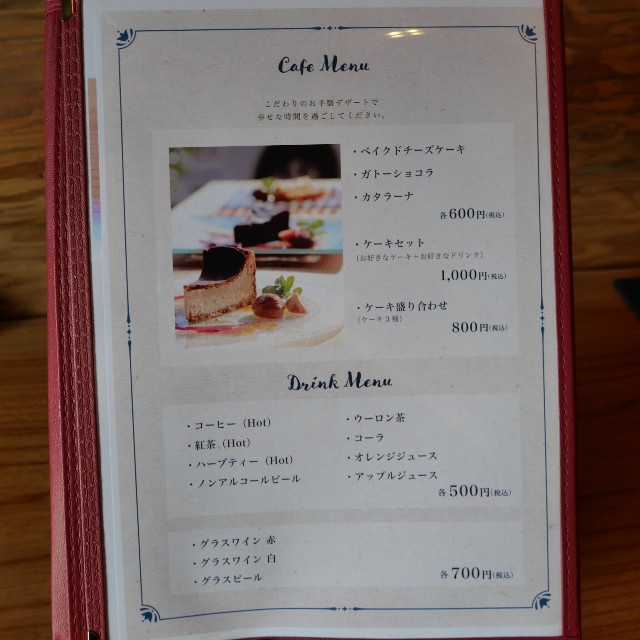 Cafe Menu
こだわりのお手製デザートで
幸せな時間を過ごしてください。
・ベイクドチーズケーキ
・ガトーショコラ
・カタラーナ
各600円(税込)
・ケーキセット
(お好きなケーキ+お好きなドリンク)
1,000円(税込)
・ケーキ盛り合わせ
(ケーキ3種)
800円(税込)
Drink Menu
・コーヒー (Hot)
・紅茶 (Hot)
・ハーブティー (Hot)
・ノンアルコールビール
・ウーロン茶
・コーラ
・オレンジジュース
・アップルジュース
各500円(税込)
・グラスワイン 赤
・グラスワイン 白
・グラスビール
各700円(税込)